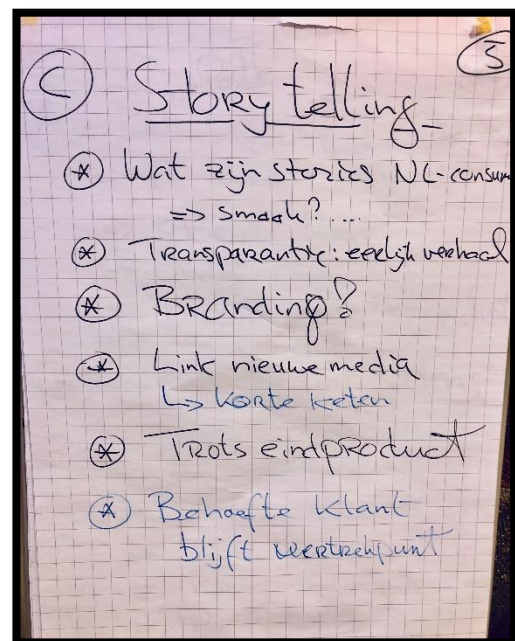 5
C Storytelling
* Wat zijn stories NL-consum
=> smaak?....
* Transparantie: eerlijk verhaal
* Branding?
* Link nieuwe media
↳ korte keten
* Trots eindproduct
* Behoefte klant
blijft vertrekpunt